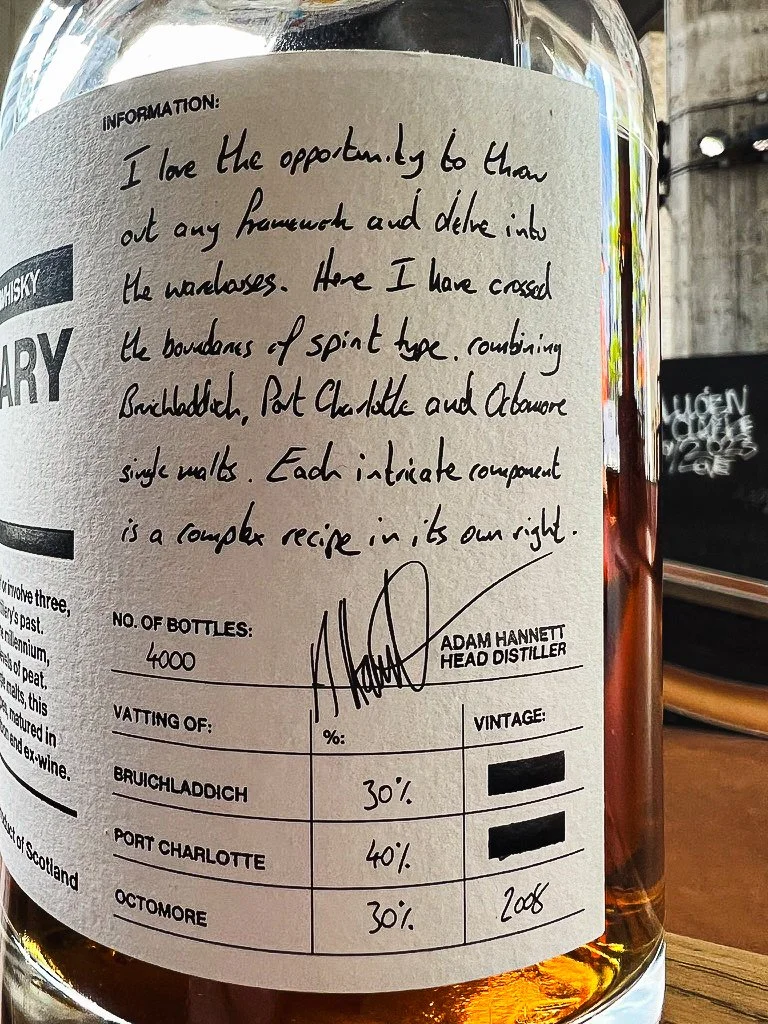 INFORMATION:
I love the opportunity to throw
out any framework and delve into
the warehouses. Here I have crossed
the boundaries of spirit type, combining
Bruichladdich, Port Charlotte and Octomore
single malts. Each intricate component
is a complex recipe in its own right.
NO. OF BOTTLES:
4000
ADAM HANNETT
HEAD DISTILLER
VATTING OF:
%:
VINTAGE:
BRUICHLADDICH
30%
PORT CHARLOTTE
40%
OCTOMORE
30%
2008
WHISKY
ARY
or involve three,
tillery's past.
millennium,
levels of peat.
malts, this
matured in
and ex-wine.
Product of Scotland